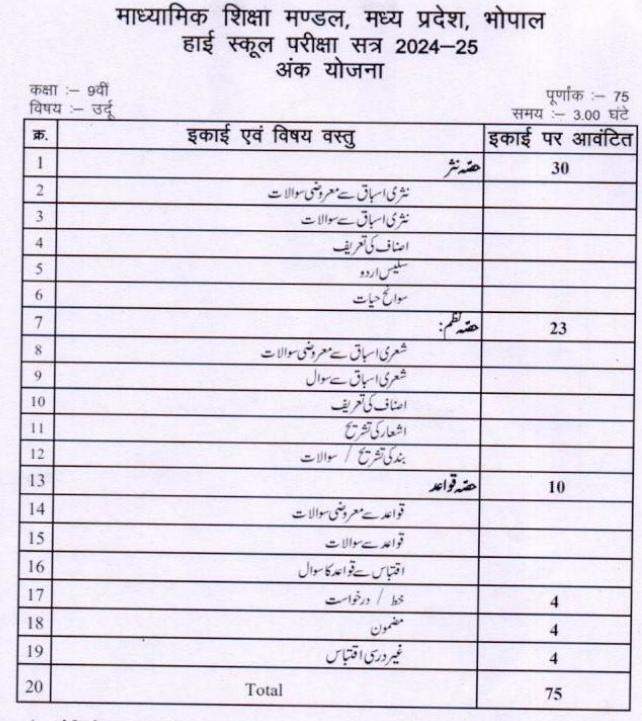 माध्यामिक शिक्षा मण्डल, मध्य प्रदेश, भोपाल
हाई स्कूल परीक्षा सत्र 2024–25
अंक योजना
कक्षा :– 9वीं
पूर्णांक :– 75
विषय :– उर्दू
समय :– 3.00 घंटे
क्र. इकाई एवं विषय वस्तु इकाई पर आवंटित
1 حصّہ نثر 30
2 نثری اسباق سے معروضی سوالات
3 نثری اسباق سے سوالات
4 اصناف کی تعریف
5 سلیس اردو
6 سوانح حیات
7 حصّہ نظم: 23
8 شعری اسباق سے معروضی سوالات
9 شعری اسباق سے سوال
10 اصناف کی تعریف
11 اشعار کی تشریح
12 بند کی تشریح / سوالات
13 حصّہ قواعد 10
14 قواعد سے معروضی سوالات
15 قواعد سے سوالات
16 اقتباس سے قواعد کا سوال
17 خط / درخواست 4
18 مضمون 4
19 غیر درسی اقتباس 4
20 Total 75